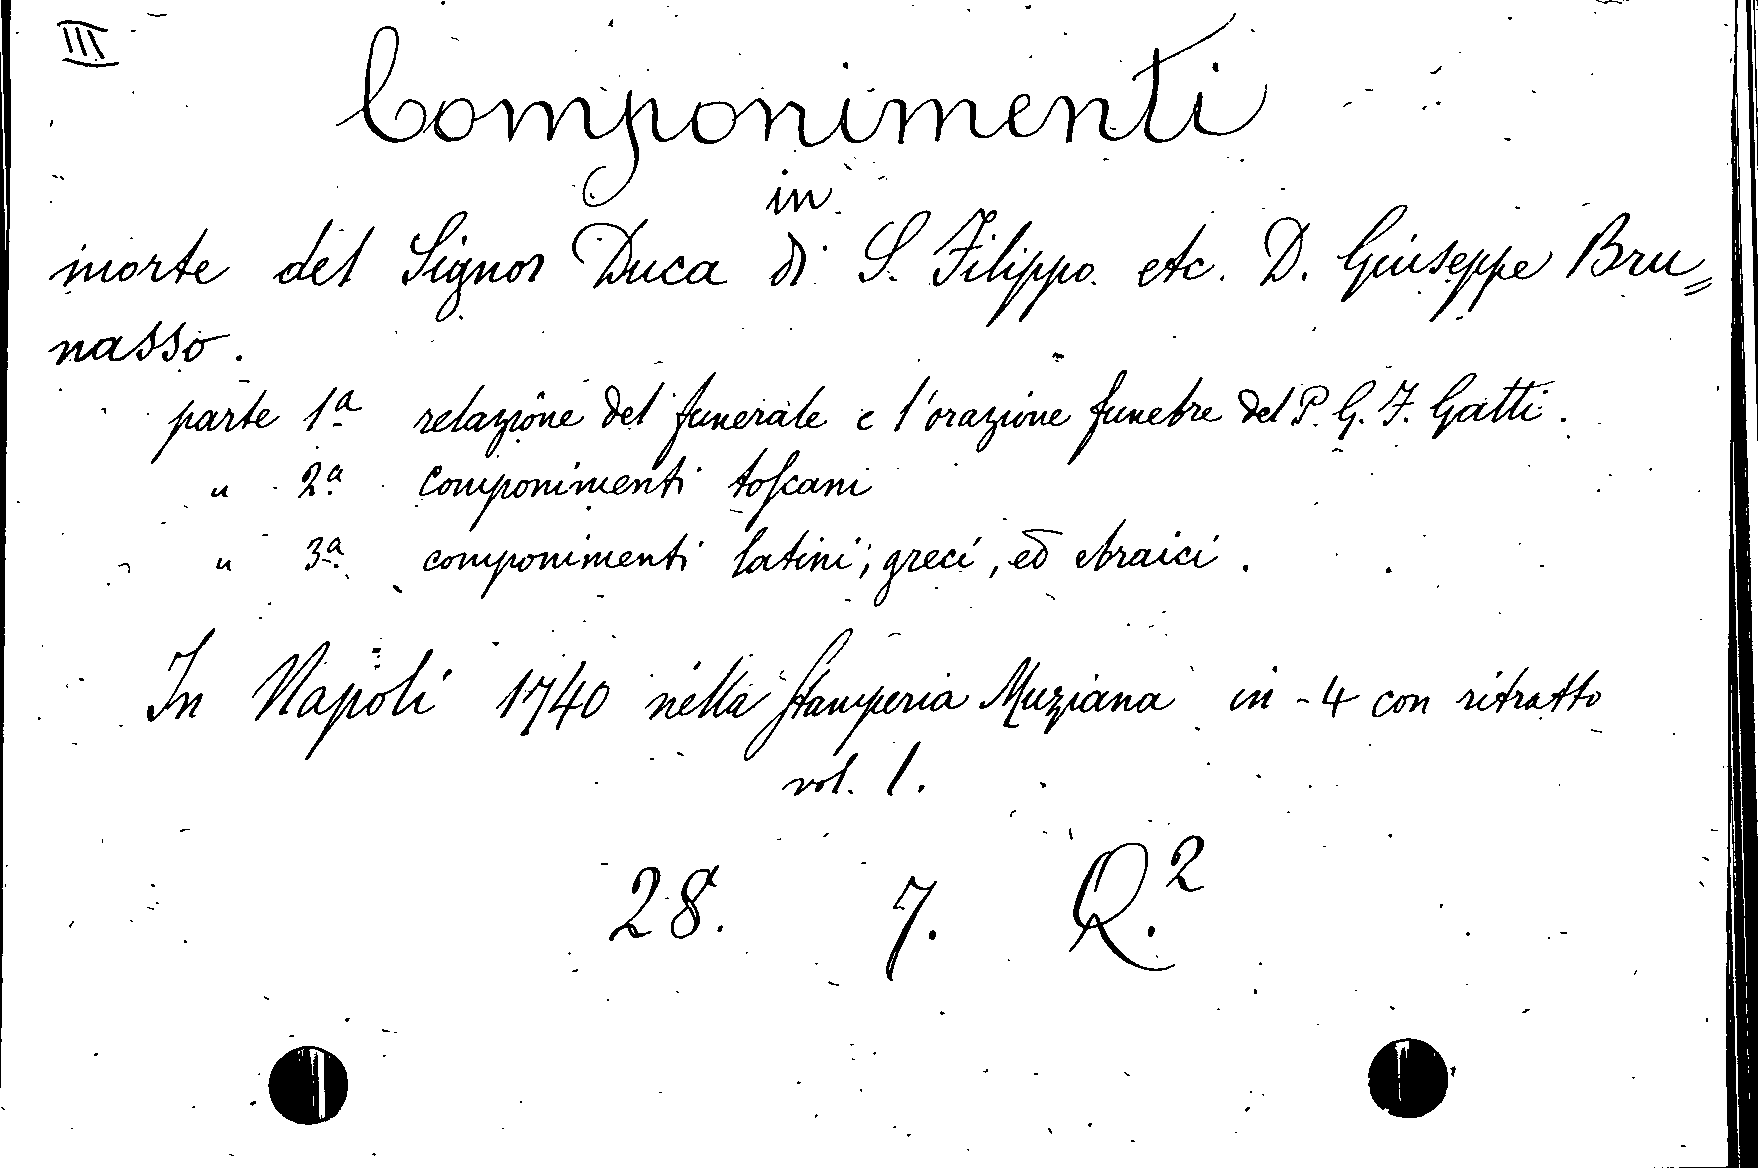 III
Componimenti
in
morte del Signor Duca di S. Filippo. etc. D. Giuseppe Bru=
nasso.
parte 1ª relazione del funerale e l'orazione funebre del P. G. F. Gatti.
" 2ª componimenti toſcani
" 3ª componimenti latini, greci, ed ebraici.
In Napoli 1740 nella Stamperia Muziana in-4 con ritratto
vol. 1.
28. 7. Q.²